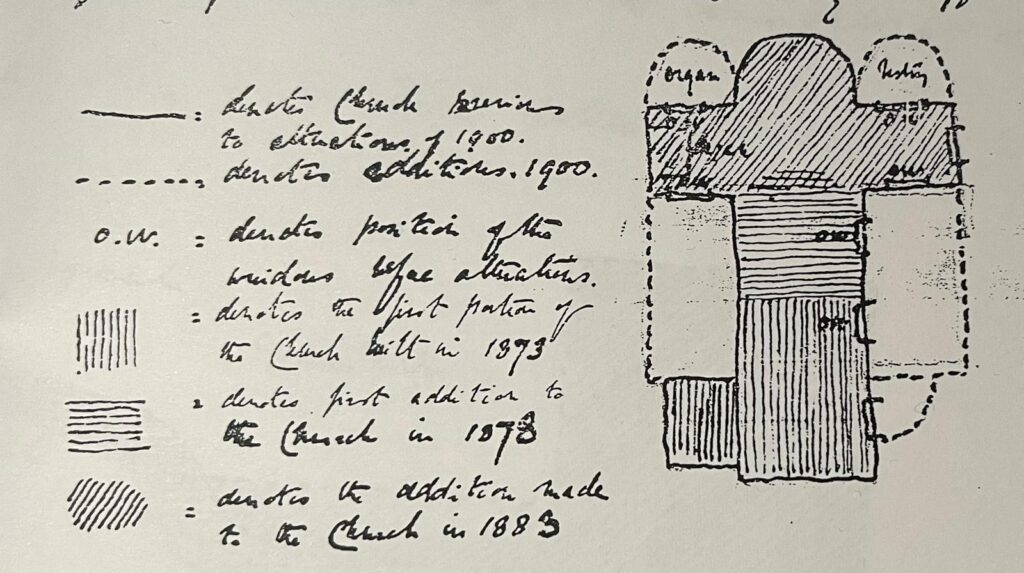 = denotes Church previous
to alterations of 1900.
= denotes additions. 1900.
O.W. = denotes position of the
windows before alterations.
= denotes the first portion of
the Church built in 1873
= denotes first addition to
the Church in 1878
= denotes the addition made
to the Church in 1883
organ
Vestry
O.W.
O.W.